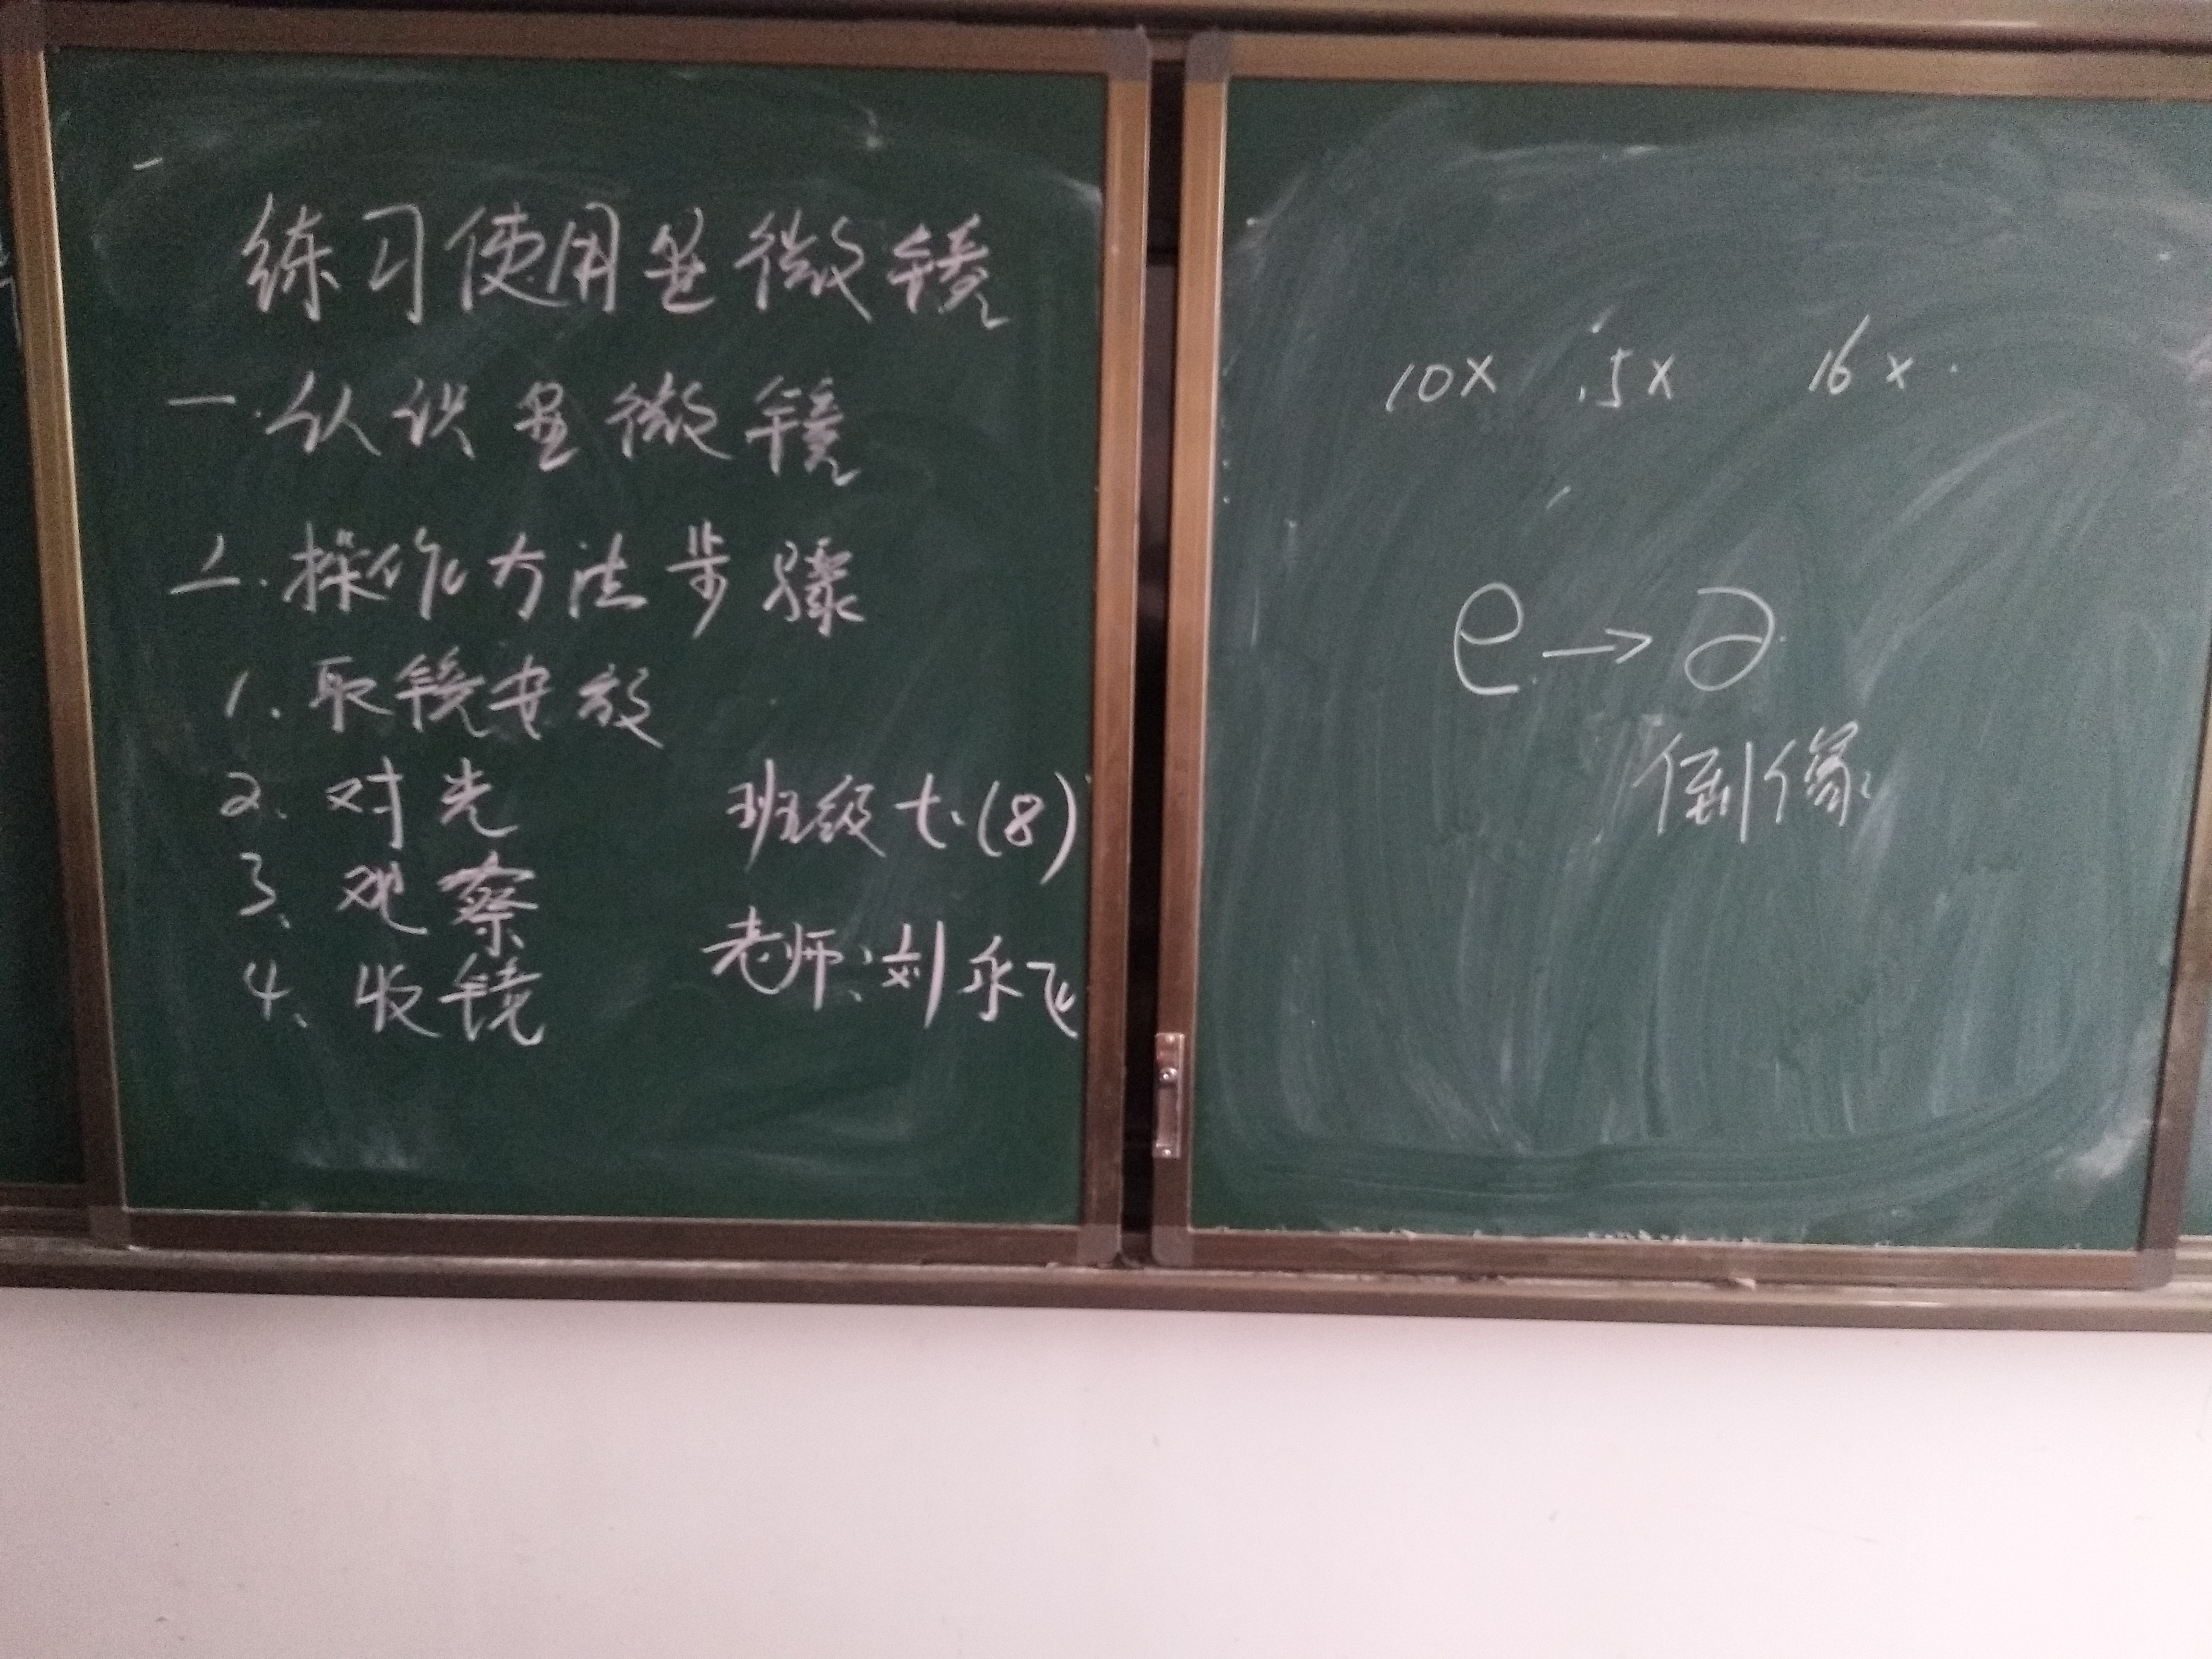 练习使用显微镜
一.认识显微镜
二.操作方法步骤
1、取镜安放
2、对光
3、观察
4、收镜
班级七.(8)
老师:刘永飞
10× 5× 16×
e→ә
倒像